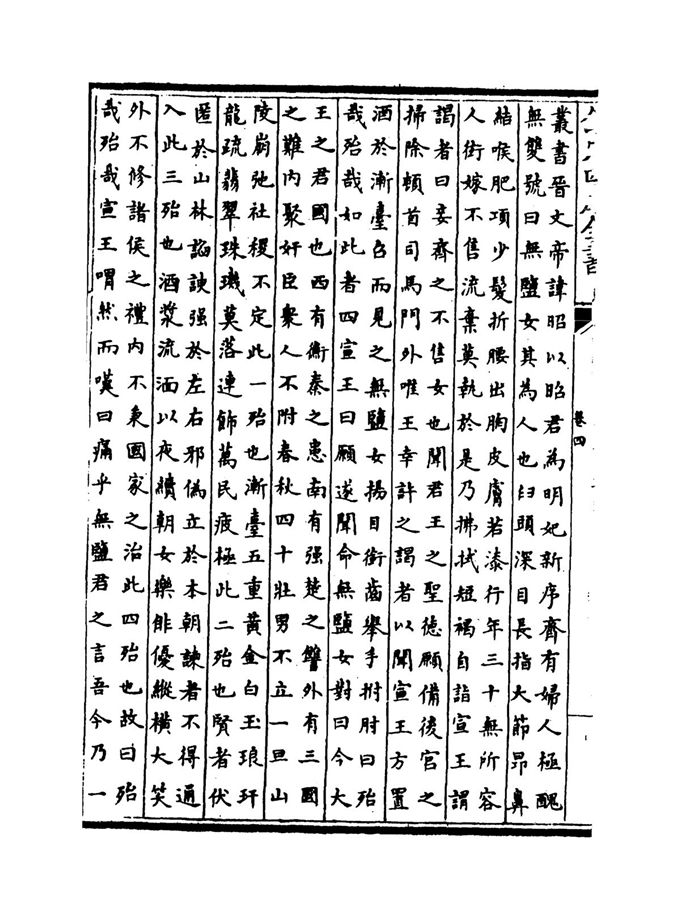 卷四
叢書晉文帝諱昭以昭君為明妃新序齊有婦人極醜
無雙號曰無鹽女其為人也臼頭深目長指大節昂鼻
結喉肥項少髮折腰出胸皮膚若漆行年三十無所容
人衒嫁不售流棄莫執於是乃拂拭短褐自詣宣王謂
謁者曰妾齊之不售女也聞君王之聖德願備後宫之
掃除頓首司馬門外唯王幸許之謁者以聞宣王方置
酒於漸臺召而見之無鹽女揚目衒齒舉手拊肘曰殆
哉殆哉如此者四宣王曰願遂聞命無鹽女對曰今大
王之君國也西有衡秦之患南有强楚之讐外有三國
之難内聚奸臣衆人不附春秋四十壯男不立一旦山
陵崩弛社稷不定此一殆也漸臺五重黄金白玉琅玕
龍疏翡翠珠璣莫落連飾萬民疲極此二殆也賢者伏
匿於山林諂諛强於左右邪偽立於本朝諫者不得通
入此三殆也酒漿流湎以夜續朝女樂俳優縱横大笑
外不修諸侯之禮内不秉國家之治此四殆也故曰殆
哉殆哉宣王喟然而嘆曰痛乎無鹽君之言吾今乃一